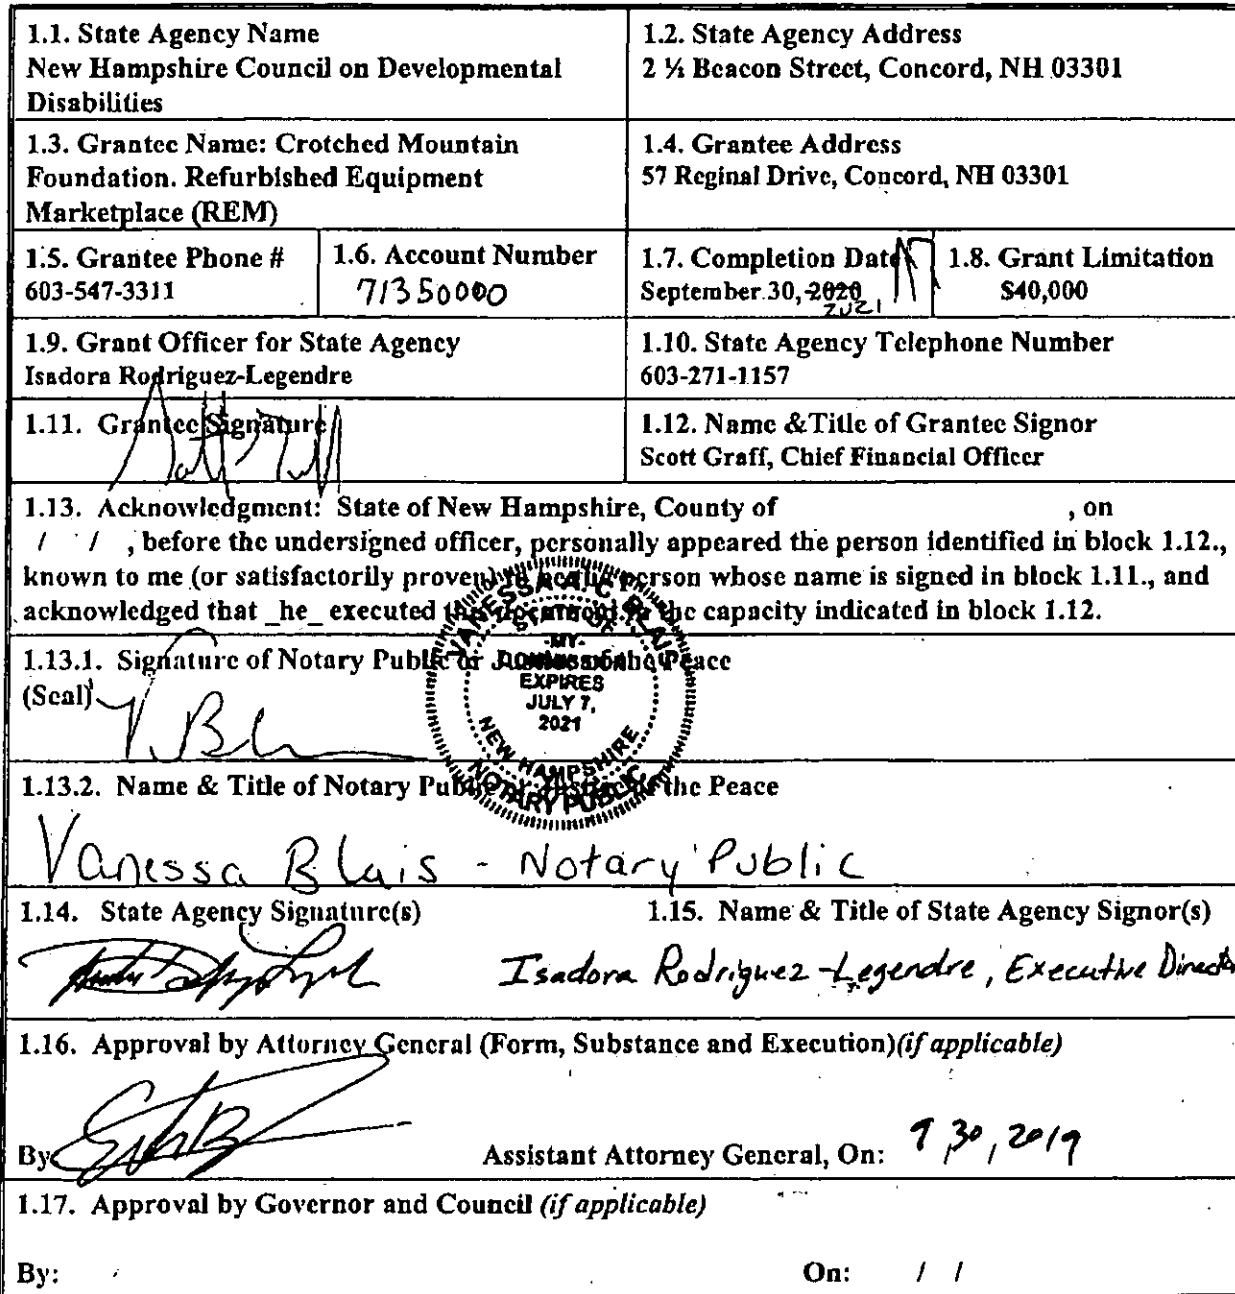 1.1. State Agency Name
New Hampshire Council on Developmental
Disabilities
1.2. State Agency Address
2 ½ Beacon Street, Concord, NH 03301
1.3. Grantee Name: Crotched Mountain
Foundation. Refurbished Equipment
Marketplace (REM)
1.4. Grantee Address
57 Reginal Drive, Concord, NH 03301
1.5. Grantee Phone #
603-547-3311
1.6. Account Number
71350000
1.7. Completion Date
September 30, 2020
2021
1.8. Grant Limitation
$40,000
1.9. Grant Officer for State Agency
Isadora Rodriguez-Legendre
1.10. State Agency Telephone Number
603-271-1157
1.11. Grantee Signature
1.12. Name &Title of Grantee Signor
Scott Graff, Chief Financial Officer
1.13. Acknowledgment: State of New Hampshire, County of , on
/ / , before the undersigned officer, personally appeared the person identified in block 1.12.,
known to me (or satisfactorily proven) to be the person whose name is signed in block 1.11., and
acknowledged that _he_ executed the capacity indicated in block 1.12.
1.13.1. Signature of Notary Public or Justice of the Peace
(Seal)
VANESSA A. C. BLAIS
STATE OF
-MY-
COMMISSION
EXPIRES
JULY 7,
2021
NEW HAMPSHIRE
NOTARY PUBLIC
1.13.2. Name & Title of Notary Public or Justice of the Peace
Vanessa Blais - Notary Public
1.14. State Agency Signature(s)
1.15. Name & Title of State Agency Signor(s)
Isadora Rodriguez-Legendre, Executive Director
1.16. Approval by Attorney General (Form, Substance and Execution)(if applicable)
By
Assistant Attorney General, On: 9 30, 2019
1.17. Approval by Governor and Council (if applicable)
By:
On: / /